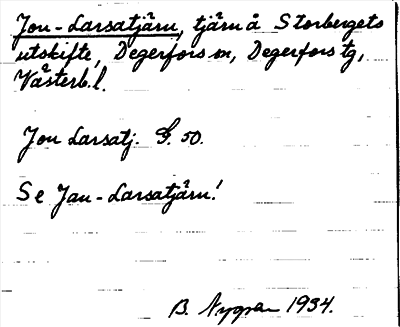 Jon-Larsatjärn, tjärn å Storbergets
utskifte, Degerfors sn, Degerfors tg,
Västerb.l.
Jon Larsatj. G. 50.
Se Jan-Larsatjärn!
B. Nygren 1934.